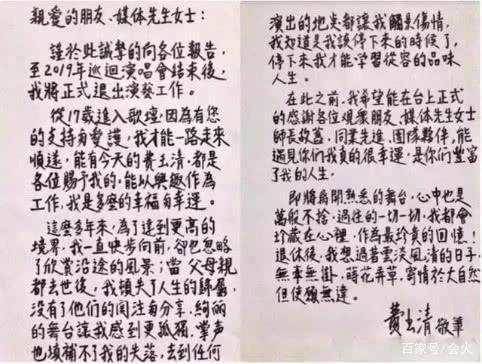 親愛的朋友、媒体先生女士:
謹於此誠摯的向各位報告,
至2019年巡迴演唱會結束後,
我將正式退出演藝工作。
從17歲進入歌壇,因為有您
的支持與愛護,我才能一路走來
順遂,能有今天的費玉清,都是
各位賜予我的,能以興趣作為
工作,我是多麼的幸福與幸運。
這麼多年來,為了達到更高的
境界,我一直快步向前,卻也忽略
了欣賞沿途的風景;當父母親
都去世後,我頓失了人生的歸屬,
沒有了他們的關注與分享,絢麗
的舞台讓我感到更孤獨,掌声
也填補不了我的失落,去到任何
演出的地點都讓我觸景傷情,
我知道是我該停下來的時候了,
停下來我才能學習從容的品味
人生。
在此之前,我希望能在台上正式
的感謝各位觀眾朋友、媒体先生女士
師長故舊、同業先進、團隊夥伴,能
遇見你們我真的很幸運,是你們豐富
了我的人生。
即將離開熟悉的舞台,心中也是
萬般不捨,過往的一切一切,我都會
珍藏在心裡,作為最珍貴的回憶!
退休後,我想過著雲淡風清的日子,
無牽無掛,蒔花弄草,寄情於大自然
但使願無違。
費玉清 敬筆
百家号/会火